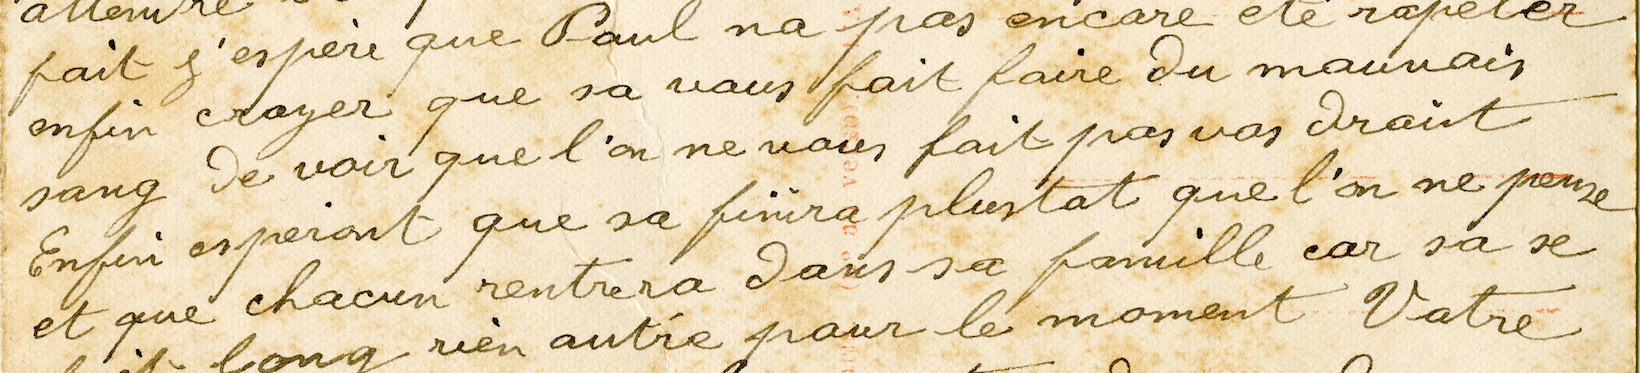 attendre
fait j'espère que Paul na pas encare eté rapeler
enfin crayer que sa vaus fait faire du mauvais
sang de voir que l'on ne vaus fait pas vas draint
Enfin esperont que sa finira plustat que l'on ne pense
et que chacun rentrera dans sa famille car sa se
fait long rien autre paur le moment Vatre